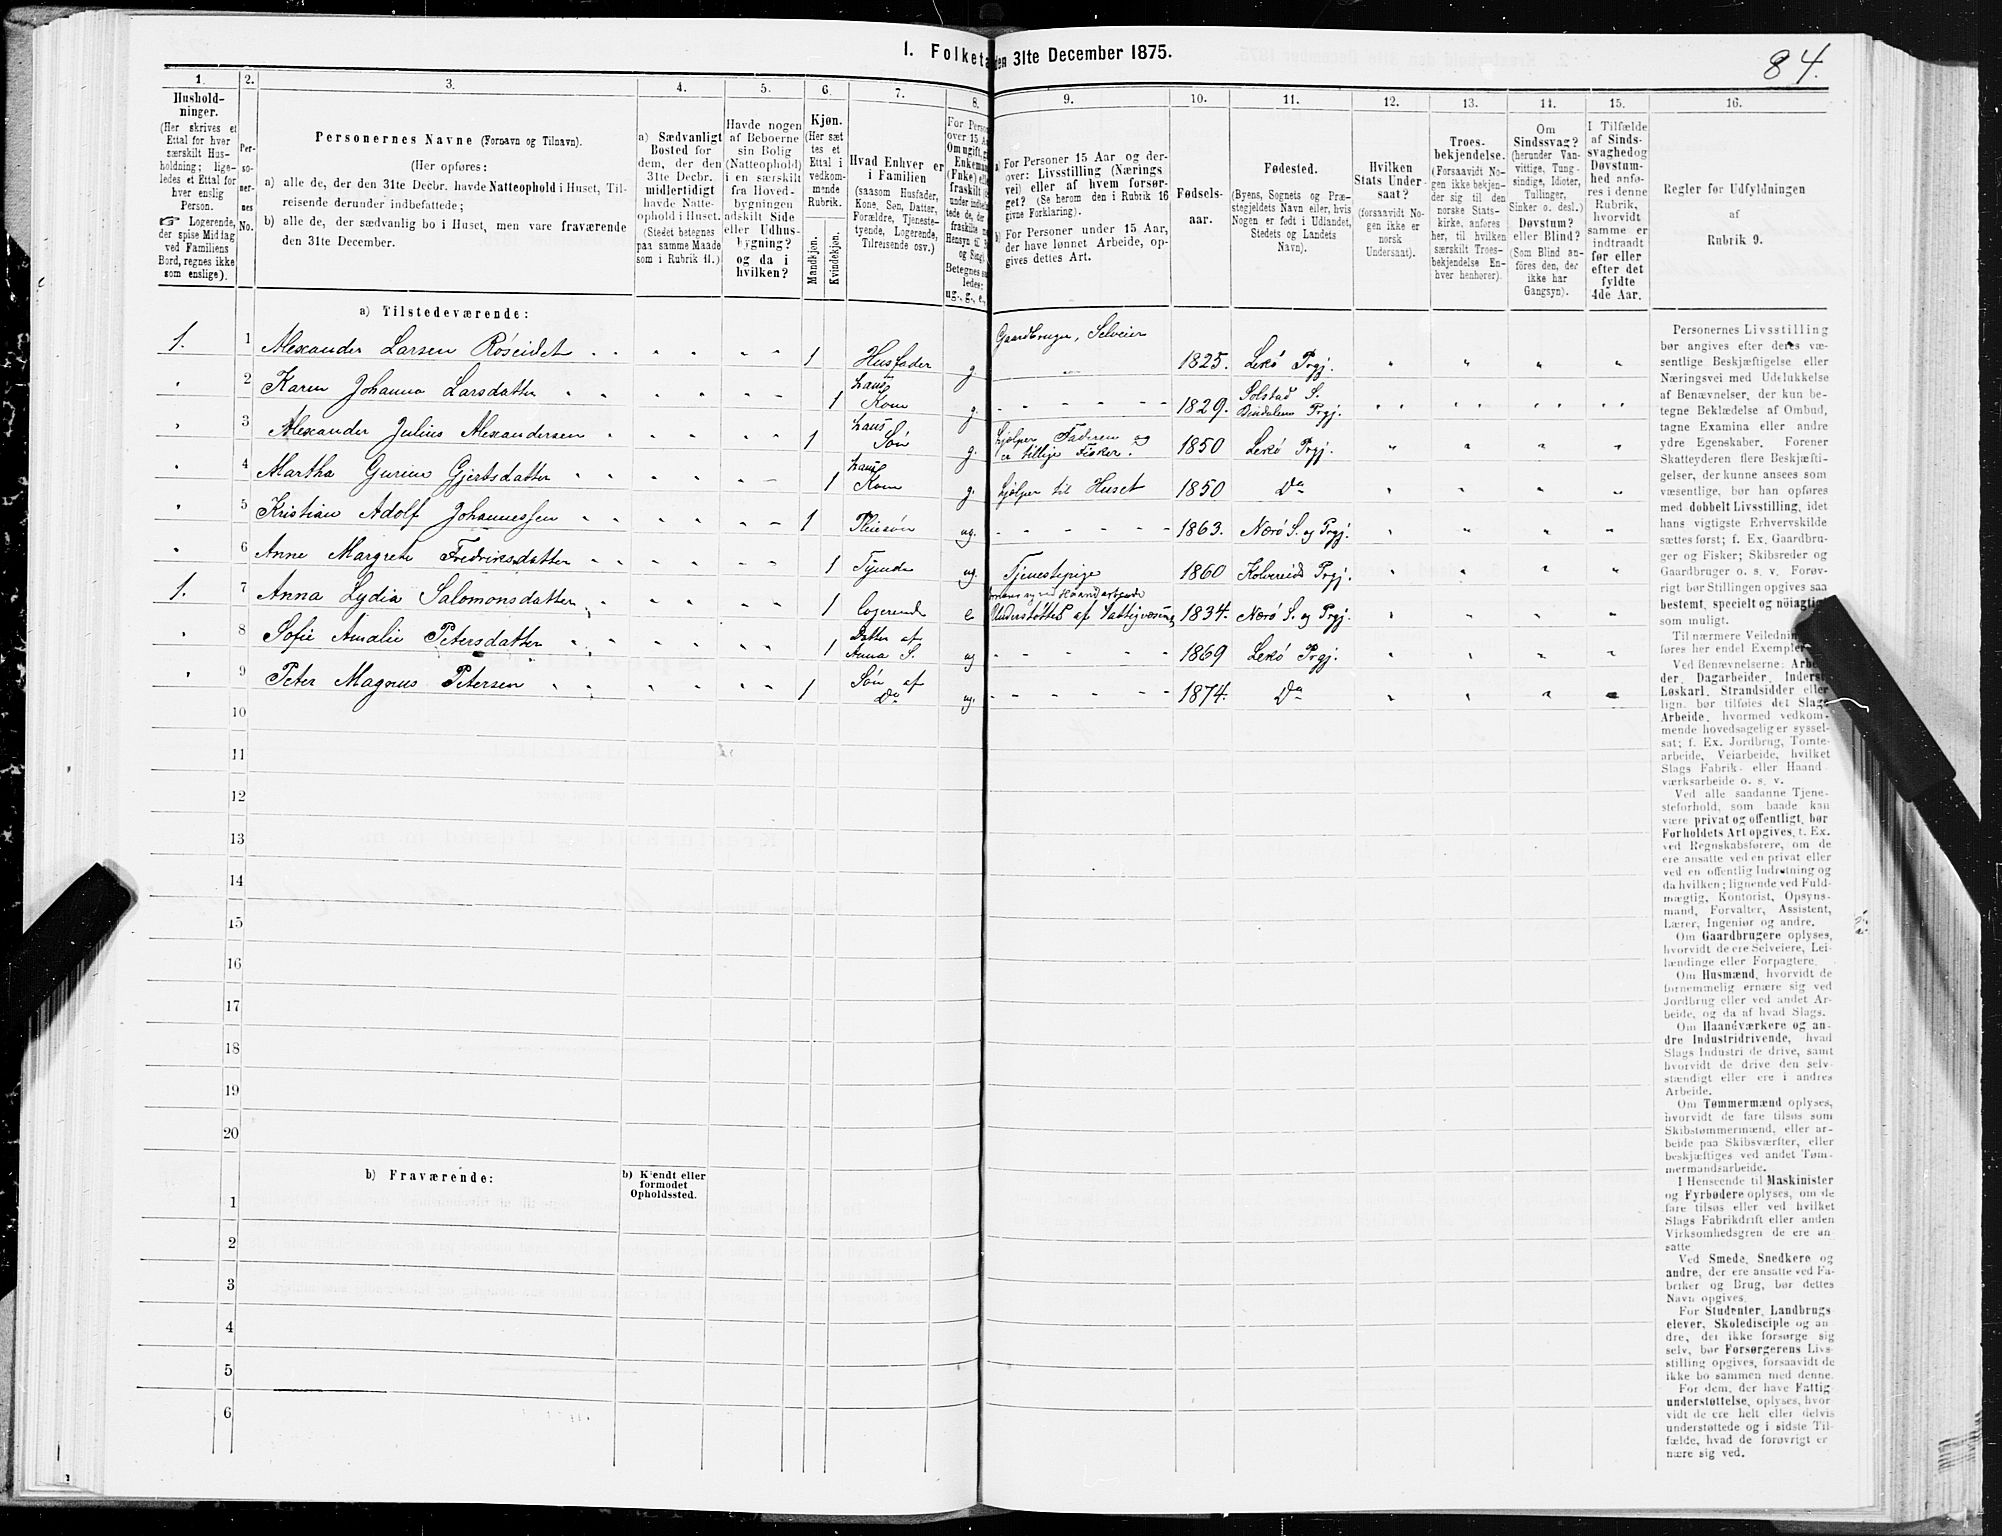 84.
1. Folketa
den 31te December 1875.
1. 2. 3. 4. 5. 6. 7. 8. 9. 10. 11. 12. 13. 14. 15. 16.
Hushold-
ninger.
(Her skrives et
Ettal for hver
særskilt Hus-
holdning; lige-
ledes et Ettal for
hver enslig
Person.
☞ Logerende,
der spise Middag
ved Familiens
Bord, regnes ikke
som enslige).
Per-
so-
ner-
nes
No.
Personernes Navne (Fornavn og Tilnavn).
(Her opføres:
a) alle de, der den 31te Decbr. havde Natteophold i Huset, Til-
reisende derunder indbefattede;
b) alle de, der sædvanlig bo i Huset, men vare fraværende
den 31te December.
a) Sædvanligt
Bosted for
dem, der den
31te Decbr.
midlertidigt
havde Natte-
ophold i Huset.
(Stedet betegnes
paa samme Maade
som i Rubrik 11.)
Havde nogen
af Beboerne
sin Bolig
(Natteophold)
i en særskilt
fra Hoved-
bygningen
adskilt Side
eller Udhus-
bygning?
og da i
hvilken?
Kjøn.
(Her sæt
tes et
Ettal i
vedkom-
mende
Rubrik.
Mandkjøn.
Kvindekjøn.
Hvad Enhver er
i Familien
(saasom Husfader,
Kone, Søn, Datter,
Forældre, Tjeneste-
tyende, Logerende,
Tilreisende osv.)
For Person
over 15 Aa
Om ugift, gi
Enkeman
(Enke) elle
fraskilt
ug., g., e.,
a) For Personer 15 Aar og der-
over: Livsstilling (Nærings
vei) eller af hvem forsør-
get? (Se herom den i Rubrik 16
givne Forklaring).
b) For Personer under 15 Aar,
der have lønnet Arbeide, op-
gives dettes Art.
Fødsels-
aar.
Fødested.
(Byens, Sognets og Præ-
stegjeldets Navn eller, hvis
Nogen er født i Udlandet,
Stedets og Landets
Navn).
Hvilken
Stats Under-
saat?
(forsaavidt No-
gen ikke er
norsk
Undersaat).
Troes-
bekjendelse.
(Forsaavidt No-
gen ikke bekjen-
der sig til den
norske Stats-
kirke, anføres
her, til hvilken
særskilt Troes-
bekjendelse En-
hver henhører).
Om
Sindssvag?
(herunder Van-
vittige, Tung-
sindige, Idioter,
Tullinger,
Sinker o. desl.)
Døvstum?
eller Blind?
(Som Blind an-
føres den, der
ikke har
Gangsyn).
I Tilfælde
af Sinds-
svaghed og
Døvstum-
hed anfø-
res i denne
Rubrik,
hvorvidt
samme er
indtraadt
før eller
efter det
fyldte
4de Aar.
Regler for Udfyldningen
af
Rubrik 9.
a) Tilstedeværende:
1. 1 Alexander Larsen Röseidet 1 Husfader g. Gaardbruger, Selveier 1825. Lekö Prgj.
2 Karen Johanna Larsdatter 1 hans Kone g. 1829. Solstad S. Bindalens Prgj.
3 Alexander Julius Alexandersen 1 hans Sön g. hjelper Faderen og er tillige Fisker. 1850 Lekö Prgj.
4 Martha Gurine Gjertsdatter 1 hans Kone g. hjelper til Huset 1850 Do
5 Kristian Adolf Johannessen 1 Pleiesön ug. 1863. Nærö S. og Prgj.
6 Anne Margrete Fredriksdatter 1 Tyende ug. Tjenestepige 1860 Kolvereids Prgj.
1. 7 Anna Lydia Salomonsdatter 1 logerende e. Understöttes af Fattigvæsenet 1834. Nærö S. og Prgj.
8 Sofie Amalie Petersdatter 1 Datter af Anna S. ug 1869 Lekö Prgj.
9 Peter Magnus Petersen 1 Sön af Do ug. 1874. Do
10
11
12
13
14
15
16
17
18
19
20
b) Fraværende:
b) Kjendt eller
formodet
Opholdssted.
1
2
3
4
5
6
Personernes Livsstilling
bør angives efter deres væ-
sentlige Beskjæftigelse eller
Næringsvei med Udelukkelse
af Benævnelser, der kun be-
tegne Beklædelse af Ombud,
tagne Examina eller andre
ydre Egenskaber. Forener
Skatteyderen flere Beskjæfti-
gelser, der kunne ansees som
væsentlige, bør han opføres
med dobbelt Livsstilling, idet
hans vigtigste Erhvervskilde
sættes først; f. Ex. Gaardbru-
ger og Fisker; Skibsreder og
Gaardbruger o. s. v. Forøv-
rigt bør Stillingen opgives saa
bestemt, specielt og nöiagtig
som muligt.
Til nærmere Veiledning
føres her endel Exempler
Ved Benævnelserne: Arbei-
der, Dagarbeider, Inderst,
Løskarl, Strandsidder eller
lign. bør tilføies det Slags
Arbeide, hvormed vedkom-
mende hovedsagelig er syssel-
sat; f. Ex. Jordbrug, Tomte-
arbeide, Veiarbeide, hvilket
Slags Fabrik- eller Haand-
værksarbeide o. s. v.
Ved alle saadanne Tjene-
steforhold, som baade kan
være privat og offentligt, bør
Forholdets Art opgives, t. Ex.
ved Regnskabsførere, om de
ere ansatte ved en privat eller
ved en offentlig Indretning og
da hvilken; lignende ved Fuld-
mægtig, Kontorist, Opsyns-
mand, Forvalter, Assistent,
Lærer, Ingeniør og andre.
Om Gaardbrugere oplyses,
hvorvidt de ere Selveiere, Lei-
lændinge eller Forpagtere.
Om Husmænd, hvorvidt de
fornemmelig ernære sig ved
Jordbrug eller ved andet Ar-
beide, og da af hvad Slags.
Om Haandværkere og an-
dre Industridrivende, hvad
Slags Industri de drive, samt
hvorvidt de drive den selv-
stændigt eller ere i andres
Arbeide.
Om Tømmermænd oplyses,
hvorvidt de fare tilsøs som
Skibstømmermænd, eller ar-
beide paa Skibsværfter, eller
beskjæftiges ved andet Tøm-
mermandsarbeide.
I Henseende til Maskinister
og Fyrbødere oplyses, om de
fare tilsøs eller ved hvilket
Slags Fabrikdrift eller anden
Virksomhedsgren de ere an-
satte
Ved Smede, Snedkere og
andre, der ere ansatte ved Fa-
briker og Brug, bør dettes
Navn opgives.
For Studenter, Landbrugs-
elever, Skoledisciple og an-
dre, der ikke forsørge sig
selv, bør Forsørgerens Livs-
stilling opgives, forsaavidt de
ikke bo sammen med denne.
For dem, der have Fattig-
understøttelse, oplyses, hvor-
vidt de ere helt eller delvis
understøttede og i sidste Til-
fælde, hvad de forøvrigt er
nære sig ved.